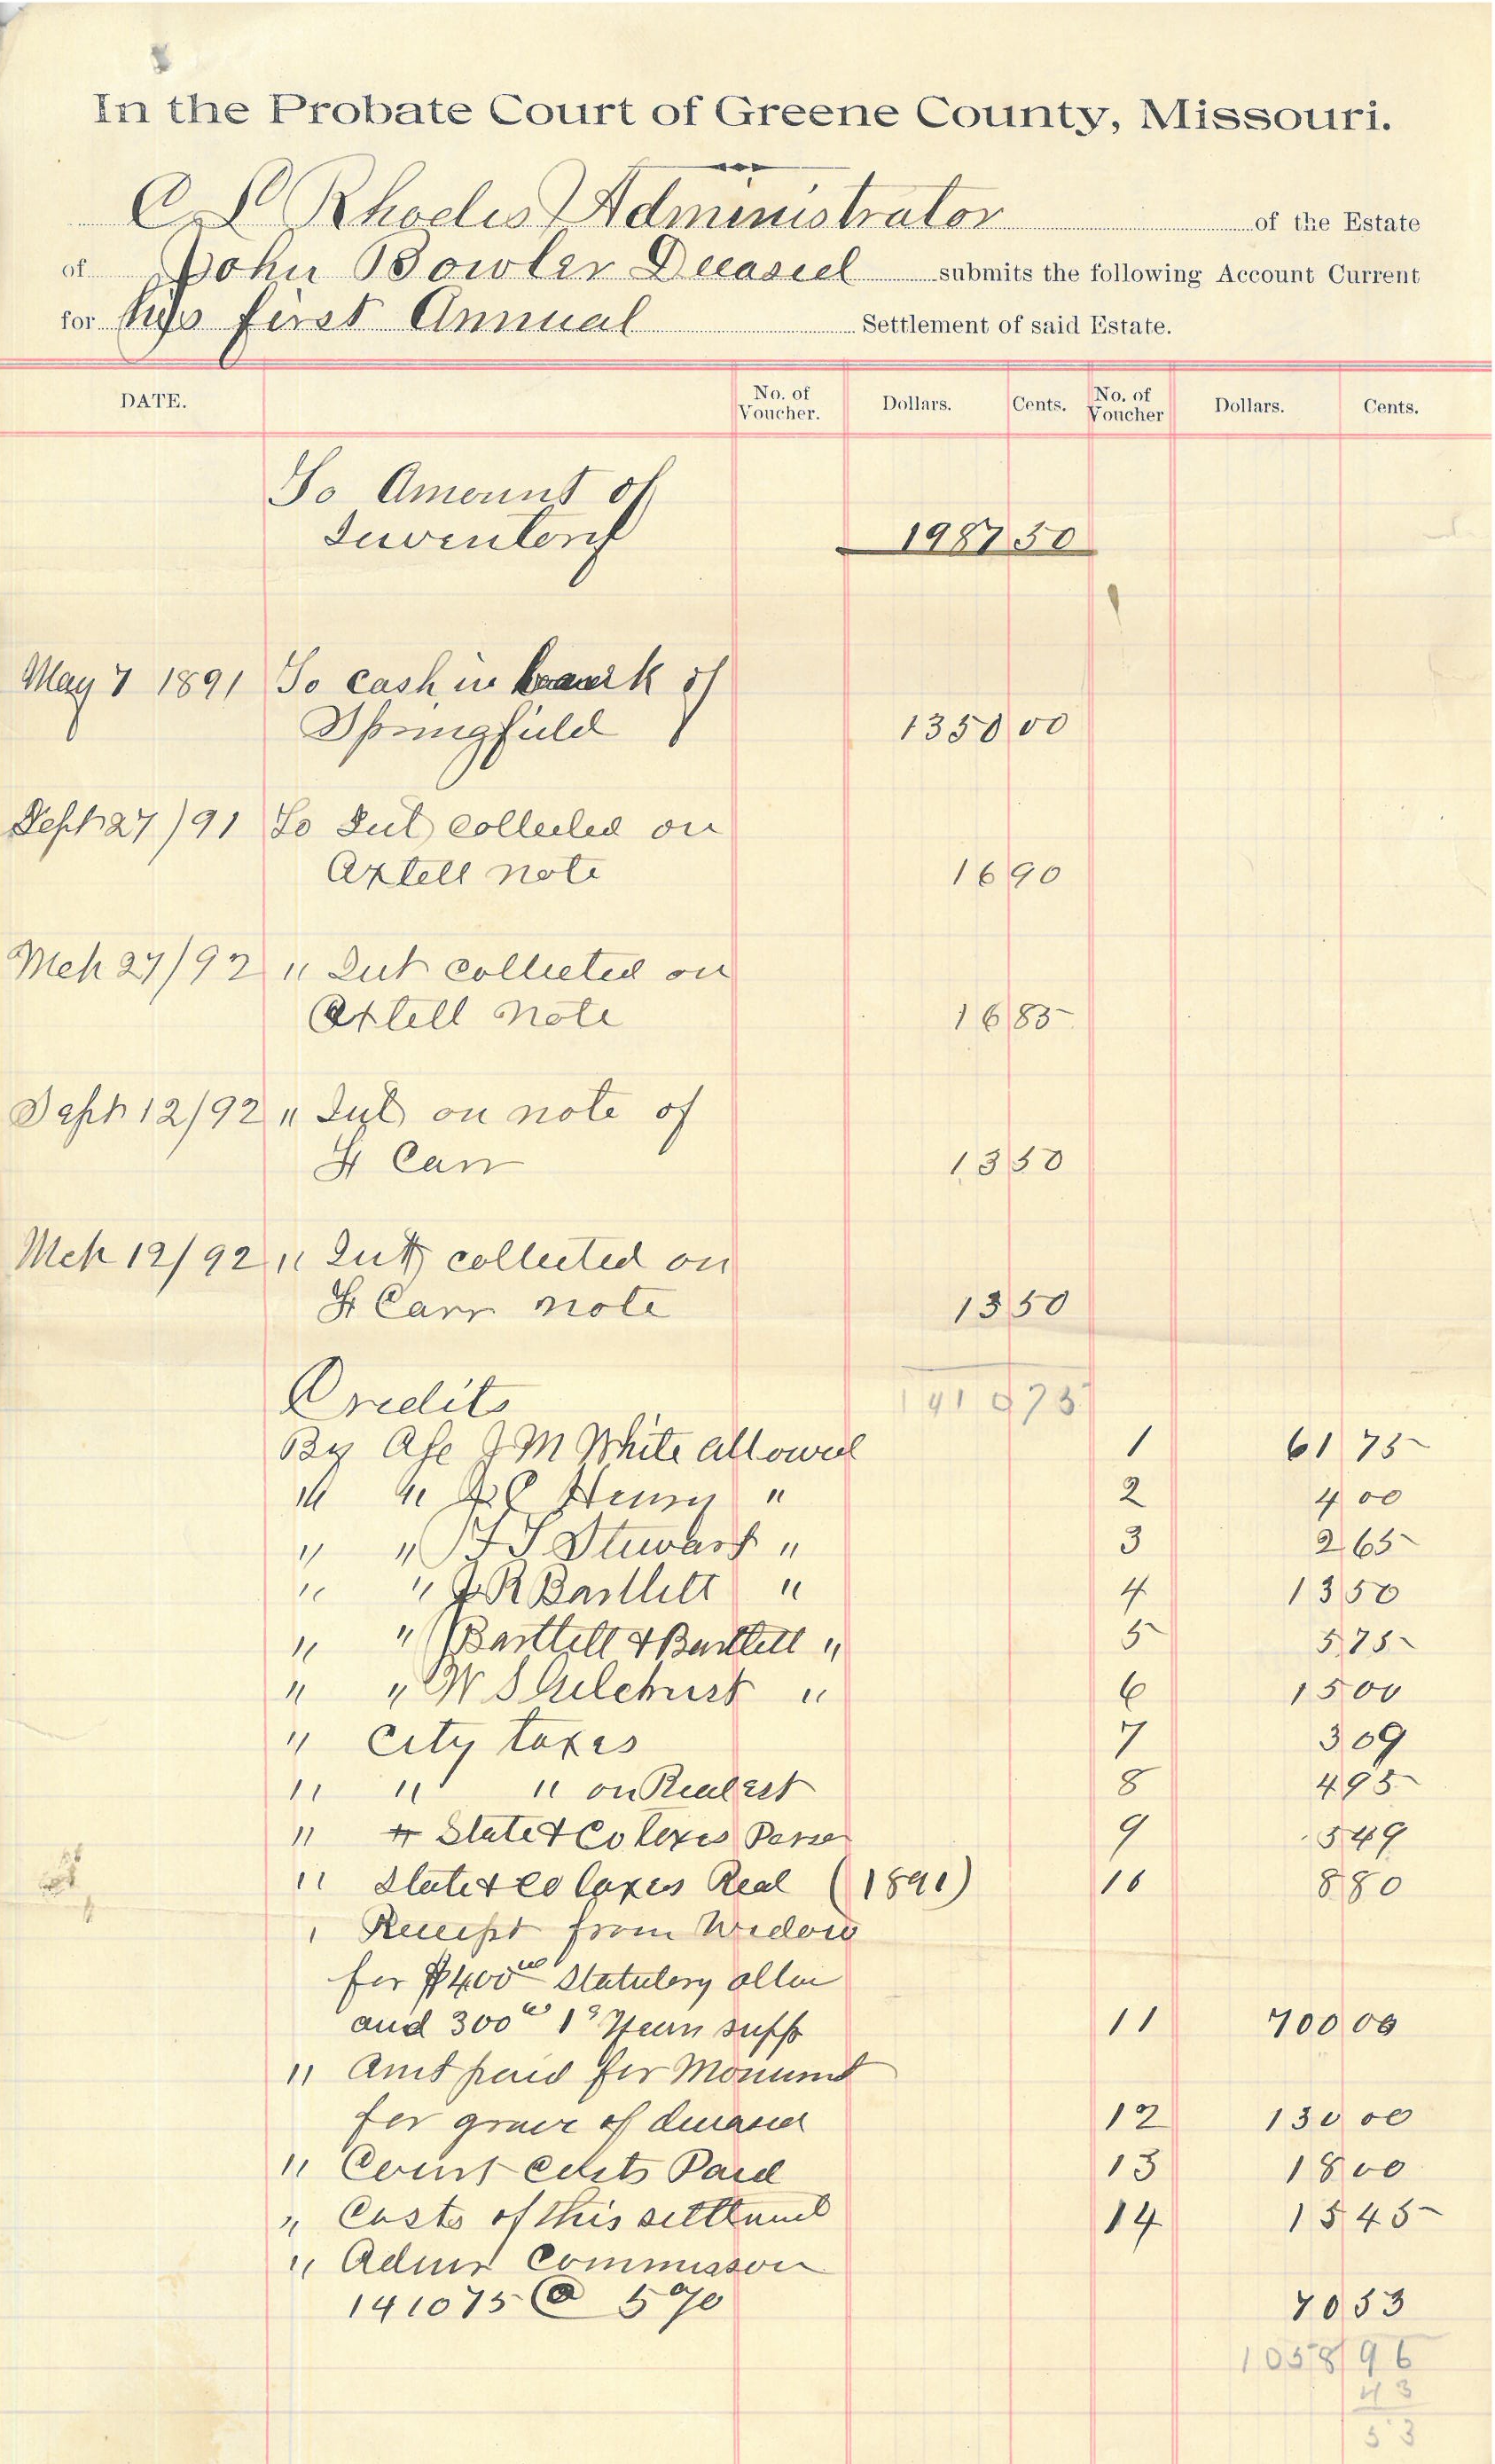 In the Probate Court of Greene County, Missouri.
C L Rhodes Administrator of the Estate
of John Bowler Deceased submits the following Account Current
for his first Annual Settlement of said Estate.
DATE. No. of Voucher. Dollars. Cents. No. of Voucher Dollars. Cents.
To Amount of
Inventory 1987 50
May 7 1891 To cash in bank of
Springfield 1350 00
Sept 27/91 To Int collected on
Axtell note 16 90
Mch 27/92 " Int collected on
Axtell note 16 85
Sept 12/92 " Int on note of
H Carr 13 50
Mch 12/92 " Int collected on
H Carr note 13 50
1410 75
Credits
By Afc J M White allowed 1 61 75
" " J C Henry " 2 4 00
" " F S Stewart " 3 2 65
" " J R Bartlett " 4 13 50
" " Bartlett & Bartlett " 5 5 75
" " W S Gilchrist " 6 15 00
" City taxes 7 3 09
" " " on Real est 8 4 95
" State & Co taxes Perso 9 5 49
" State & Co taxes Real (1891) 10 8 80
" Receipt from Widow
for $400 00 Statutory allow
and 300 00 1s Years supp 11 700 00
" Amt paid for Monumt
for grave of deceased 12 130 00
" Court Costs Paid 13 18 00
" Costs of this settlement 14 15 45
" Admr Commisson
1410 75 @ 5% 70 53
1058 96
43
53